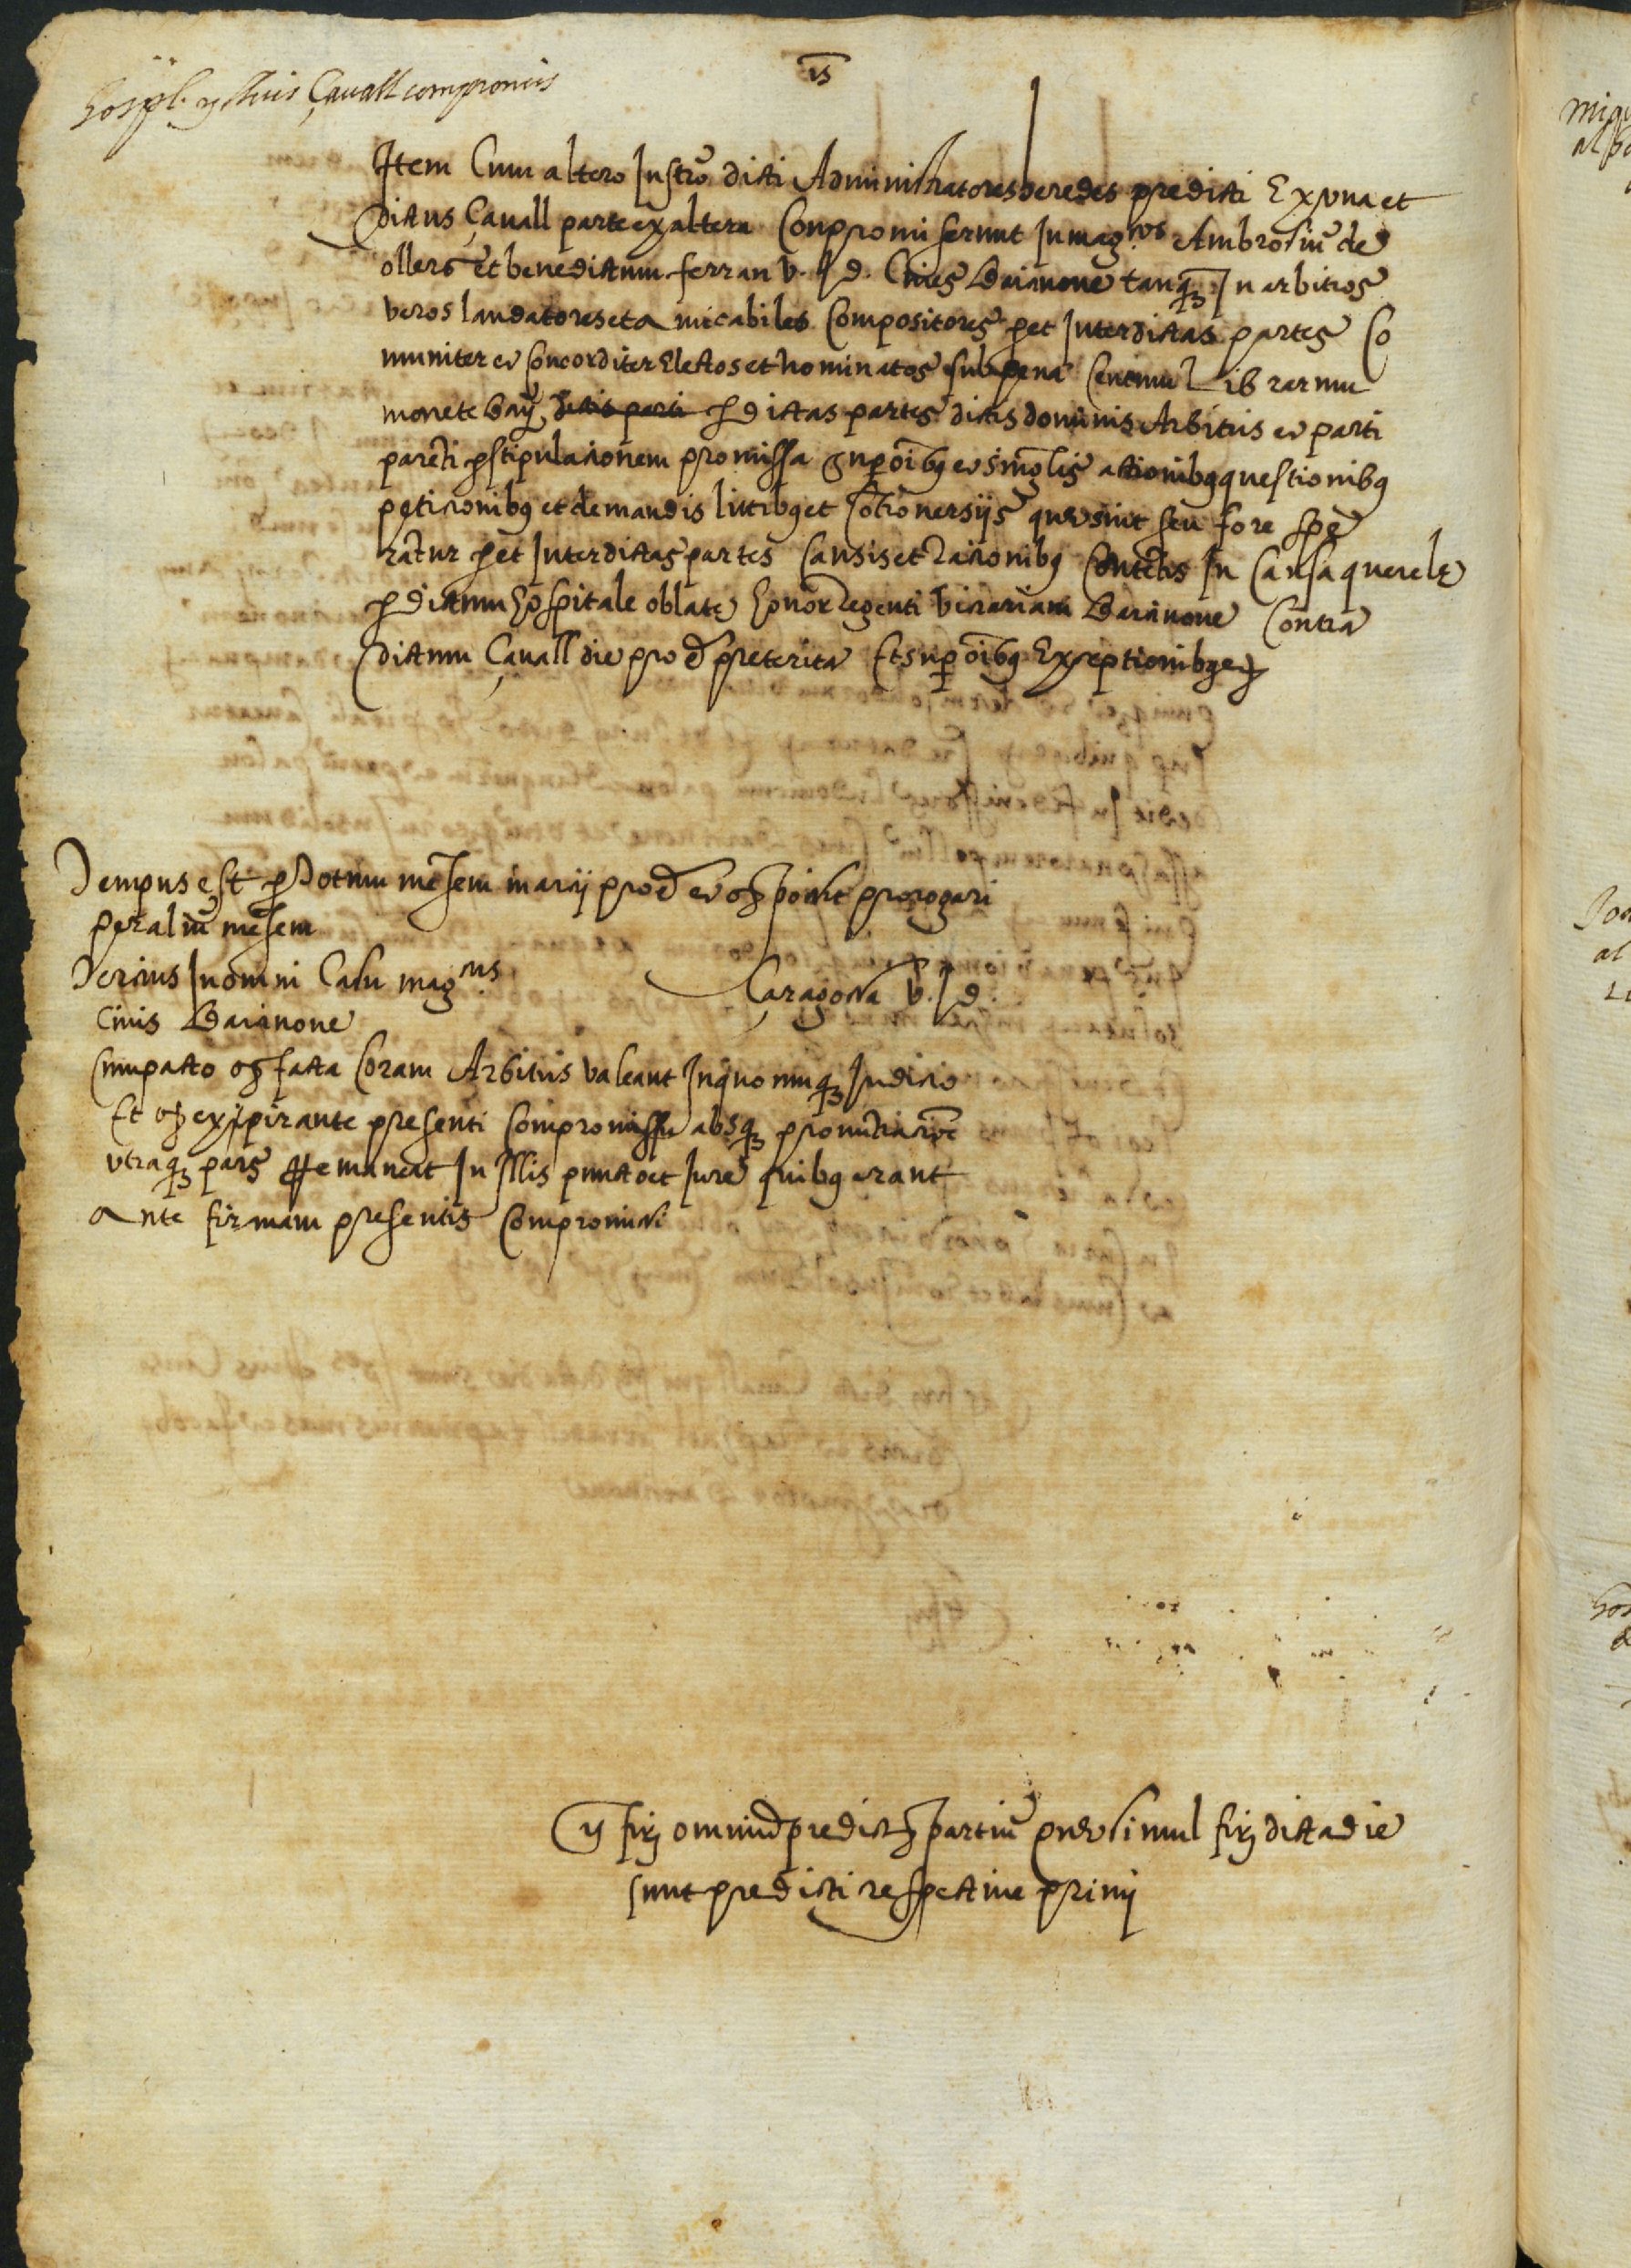 Hospl. y lluis Çavall compromis
Item Cum altero Instro dicti Administratores heredes predicti Ex una et
dictus Çavall parte ex altera Conpromiserunt In mag.cos Ambrosiu de
ollers et benedictum ferran V. J. d. Cives Barcinone tanq3 In arbitros
veros laudatores et amicabiles Compositores per et Inter dictas partes Co
muniter et Concorditer Electos et nominatos sub pena Centum Librarum
monete bar, dictis parti p dictas partes dictis dominis Arbitris et parti
parēti p stipulacionem promissa sup oibg et singlis actionibg questionibg
peticionibg et demandis littibg et Cotroversijs que sunt seu fore spe
rātur per et Inter dictas partes Causis et racionibg Contētis In Causa querele
p dictum Hospitale oblate honor regenti vicariam Barcinone Contra
dictum Çavall die pro d preterita Et sup oibg Exceptionibg etc
Tempus est p totum mēsem marcij pro d et q possit prorogari
per aliū mēsem
Tercius In omni Casu mag.cus Çaragossa V. J. d.
Civis Barcinone
Cum pacto q facta Coram Arbitris valeant In quocumq3 Judicio
Et q expirante presenti Compromisso absq3 pronunciacioe
utraq3 pars Remaneat In Illis puncto et Jure quibg erant
Ante firmam presentis Compromissi
ts firē omniud predict partiū que simul firē dicta die
sunt predicti respective primi